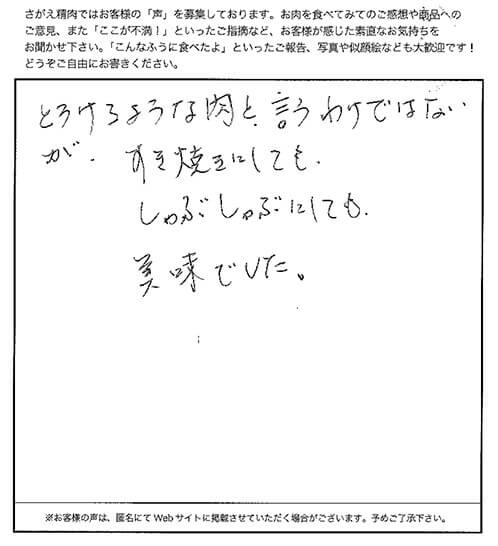 さがえ精肉ではお客様の「声」を募集しております。お肉を食べてみてのご感想や商品への
ご意見、また「ここが不満！」といったご指摘など、お客様が感じた素直なお気持ちを
お聞かせ下さい。「こんなふうに食べたよ」といったご報告、写真や似顔絵なども大歓迎です！
どうぞご自由にお書きください。
とろけるような肉と、言うわけではない
が、すき焼きにしても、
しゃぶしゃぶにしても、
美味でした。
※お客様の声は、匿名にて Web サイトに掲載させていただく場合がございます。予めご了承下さい。